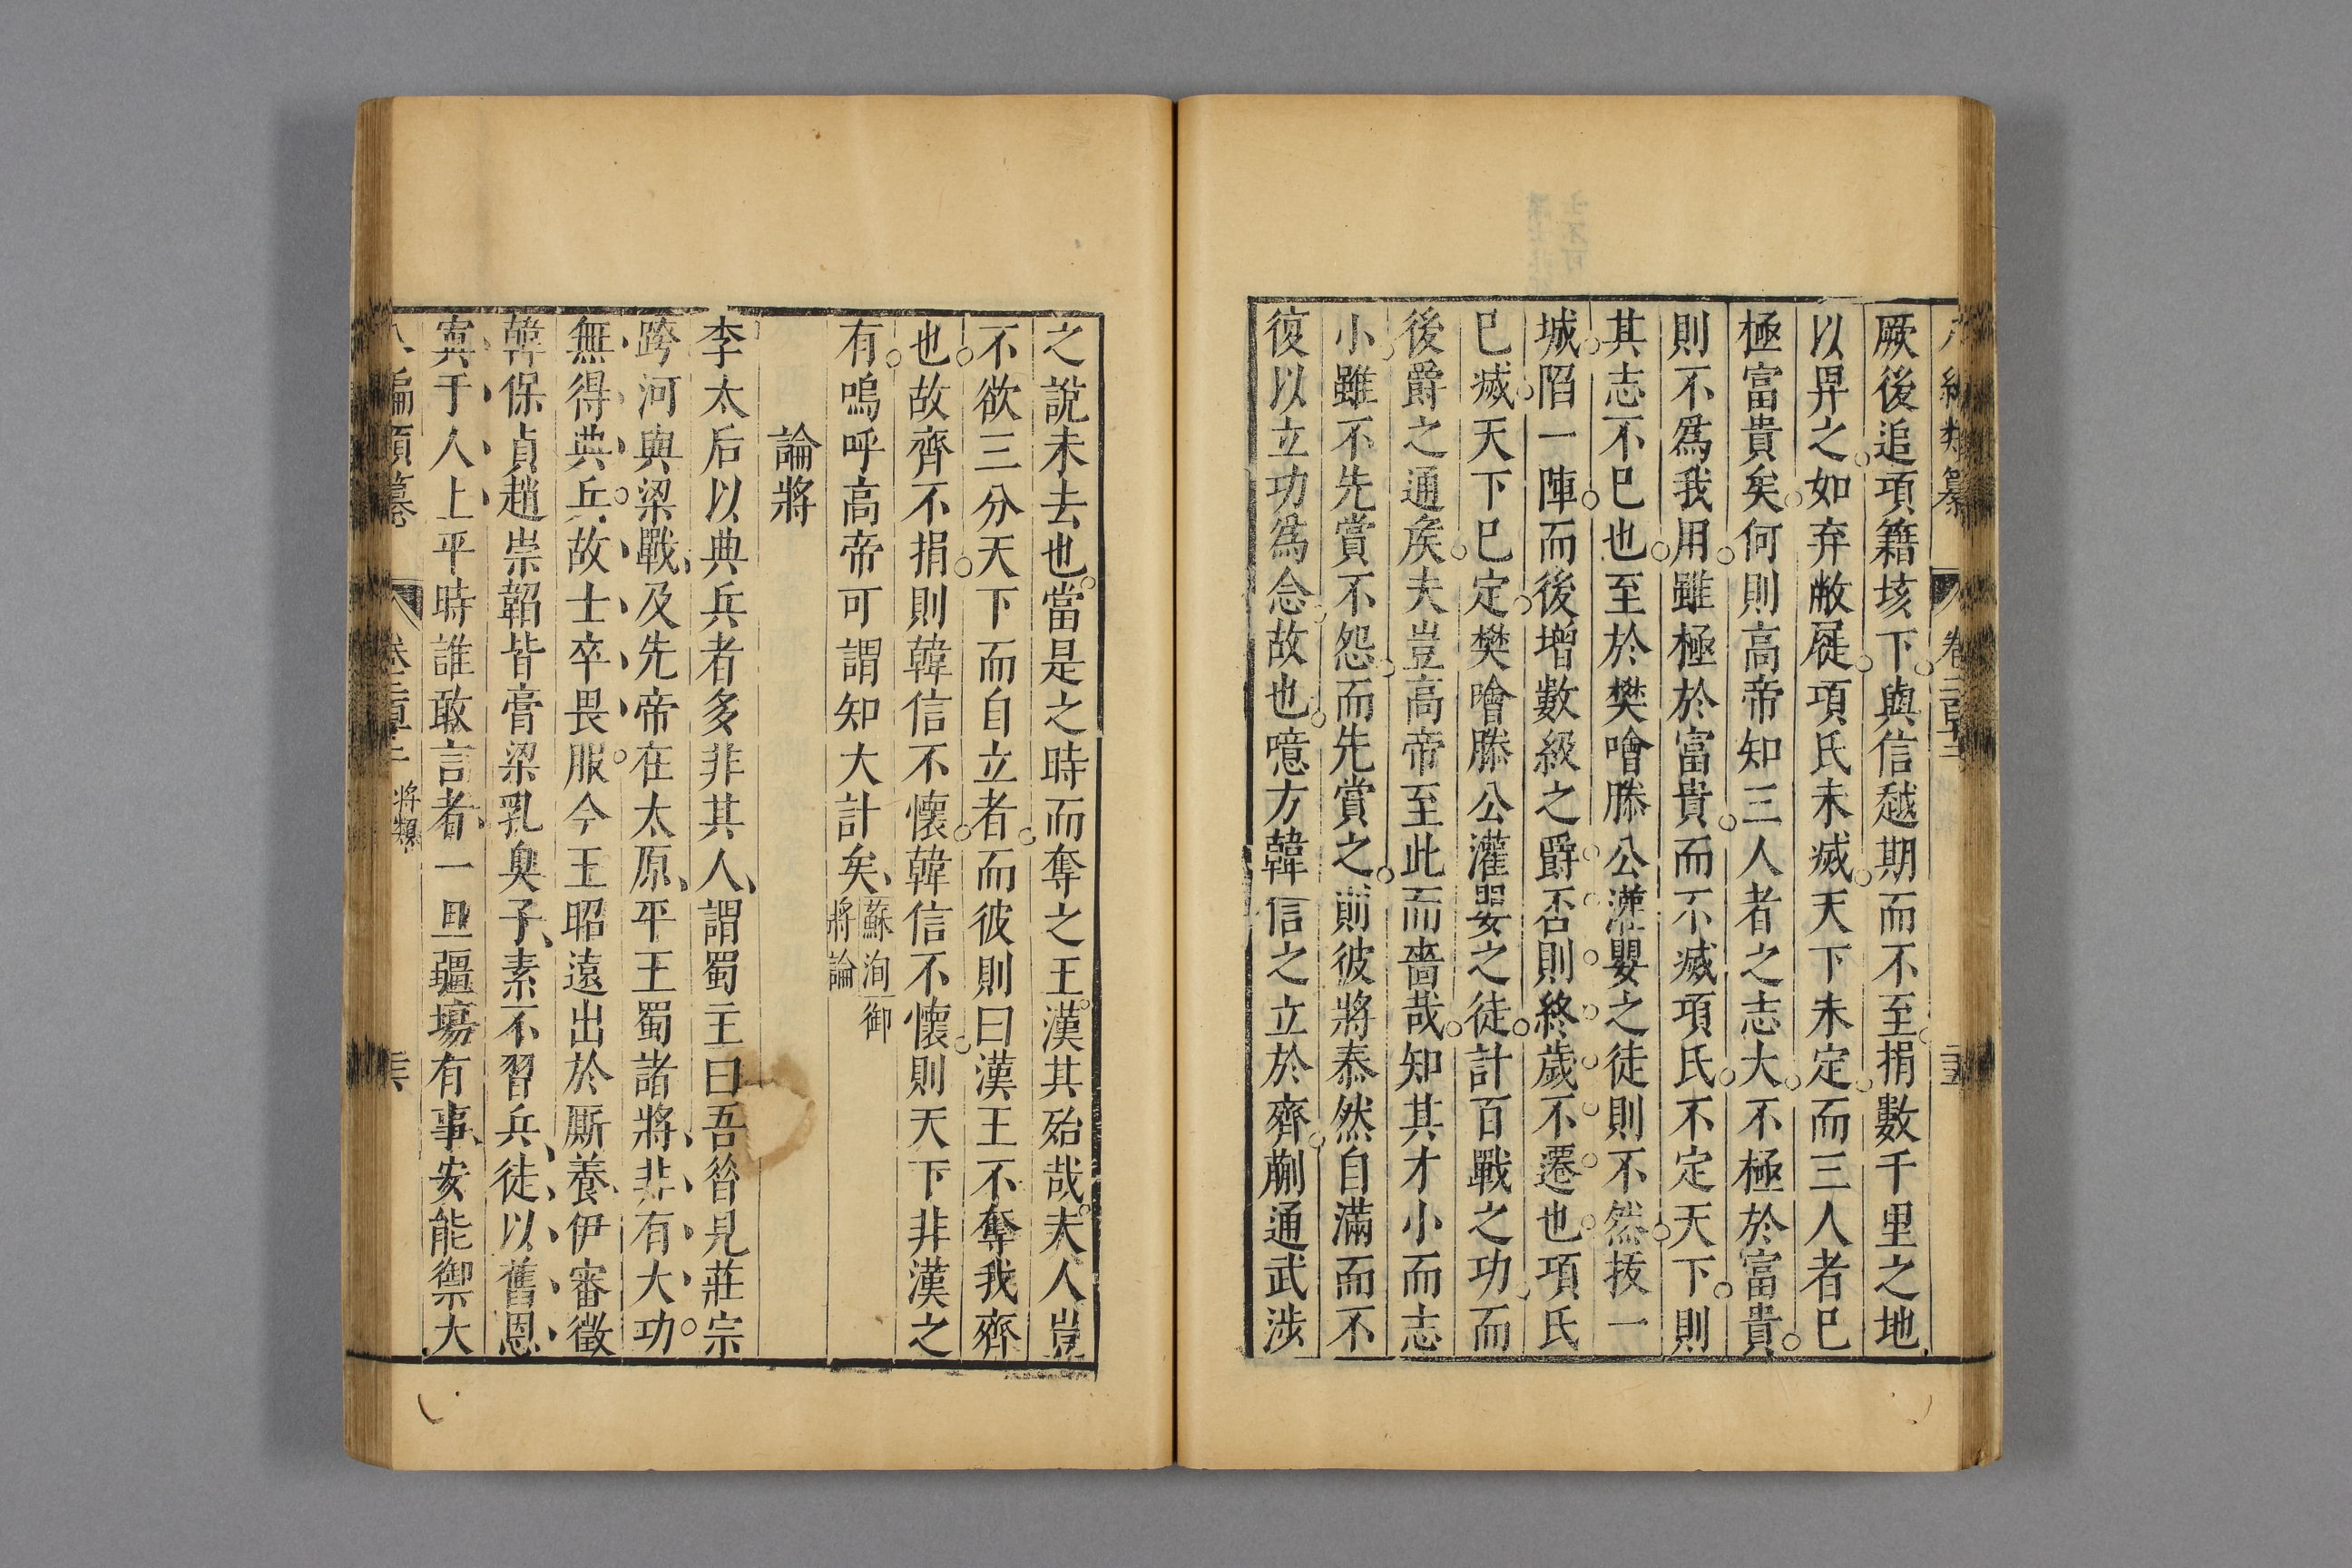 厥後追項籍垓下與信越期而不至捐數千里之地
以畀之如弃敝屣項氏未滅天下未定而三人者已
極富貴矣何則高帝知三人者之志大不極於富貴
則不爲我用雖極於富貴而不滅項氏不定天下則
其志不已也至於樊噲滕公灌嬰之徒則不然拔一
城陷一陣而後增數級之爵否則終歲不遷也項氏
已滅天下已定樊噲滕公灌嬰之徒計百戰之功而
後爵之通矦夫豈高帝至此而嗇哉知其才小而志
小雖不先賞不怨而先賞之則彼將泰然自滿而不
復以立功爲念故也噫方韓信之立於齊蒯通武涉
之說未去也當是之時而奪之王漢其殆哉夫人豈
不欲三分天下而自立者而彼則曰漢王不奪我齊
也故齊不捐則韓信不懷韓信不懷則天下非漢之
有嗚呼高帝可謂知大計矣蘇洵御
將論
論將
李太后以典兵者多非其人謂蜀主曰吾昝見莊宗
跨河與梁戰及先帝在太原平王蜀諸將非有大功
無得典兵故士卒畏服今王昭遠出於厮養伊審徵
韓保貞趙崇韜皆膏梁乳臭子素不習兵徒以舊恩
寘于人上平時誰敢言者一旦疆場有事安能禦大
將類